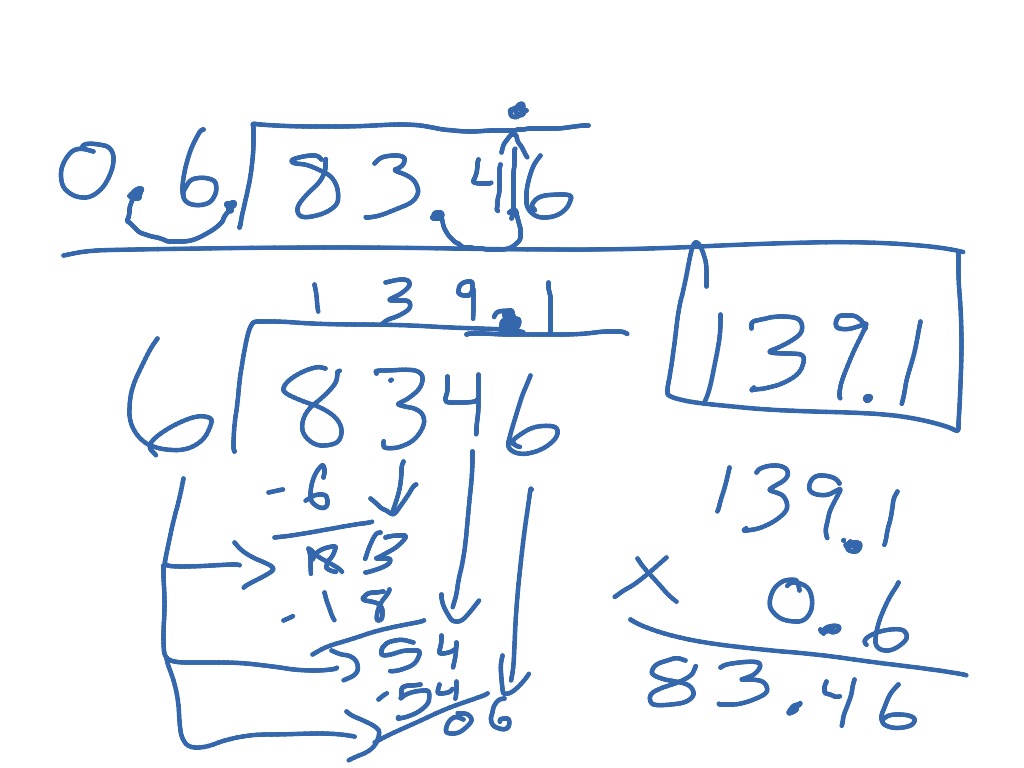 0.6. 83.4.6
139.1
6 8346
139.1
- 6
3
- 18
54
- 54
06
139.1
× 0.6
83.46